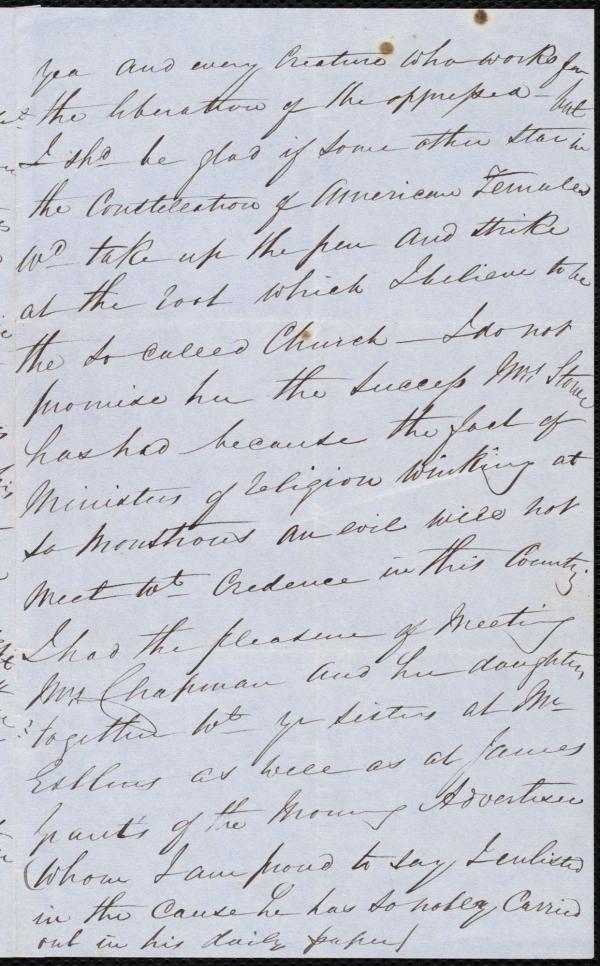 yea and every Creature who works for
the liberation of the oppressed – but
I shd be glad if some other Star in
the Constellation of American Females
wd take up the pen and strike
at the root which I believe to be
the so called Church – I do not
promise her the success Mrs Stowe
has had because the fact of
Ministers of religion winking at
so monstrous an evil will not
meet wt Credence in this County.
I had the pleasure of Meeting
Mrs Chapman and her daughters
together wt yr sisters at Mr
Estlins as well as at James
Grant's of the Morning Advertiser
(whom I am proud to say I enlisted
in the cause he has so nobly Carried
out in his daily paper)